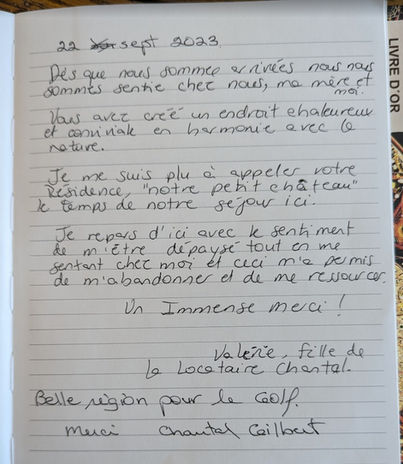 22 sept 2023.
Dès que nous sommes arrivées nous nous
sommes sentie chez nous, ma mère et
moi.
Vous avez créé un endroit chaleureux
et conviviale en harmonie avec la
nature.
Je me suis plu à appeler votre
Résidence, "notre petit château"
le temps de notre séjour ici.
Je repars d'ici avec le sentiment
de m'être dépaysé tout en me
sentant chez moi et ceci m'a permis
de m'abandonner et de me ressourcer.
Un Immense merci !
Valérie, fille de
la Locataire Chantal.
Belle région pour le Golf.
Merci Chantal
LIVRE D'OR